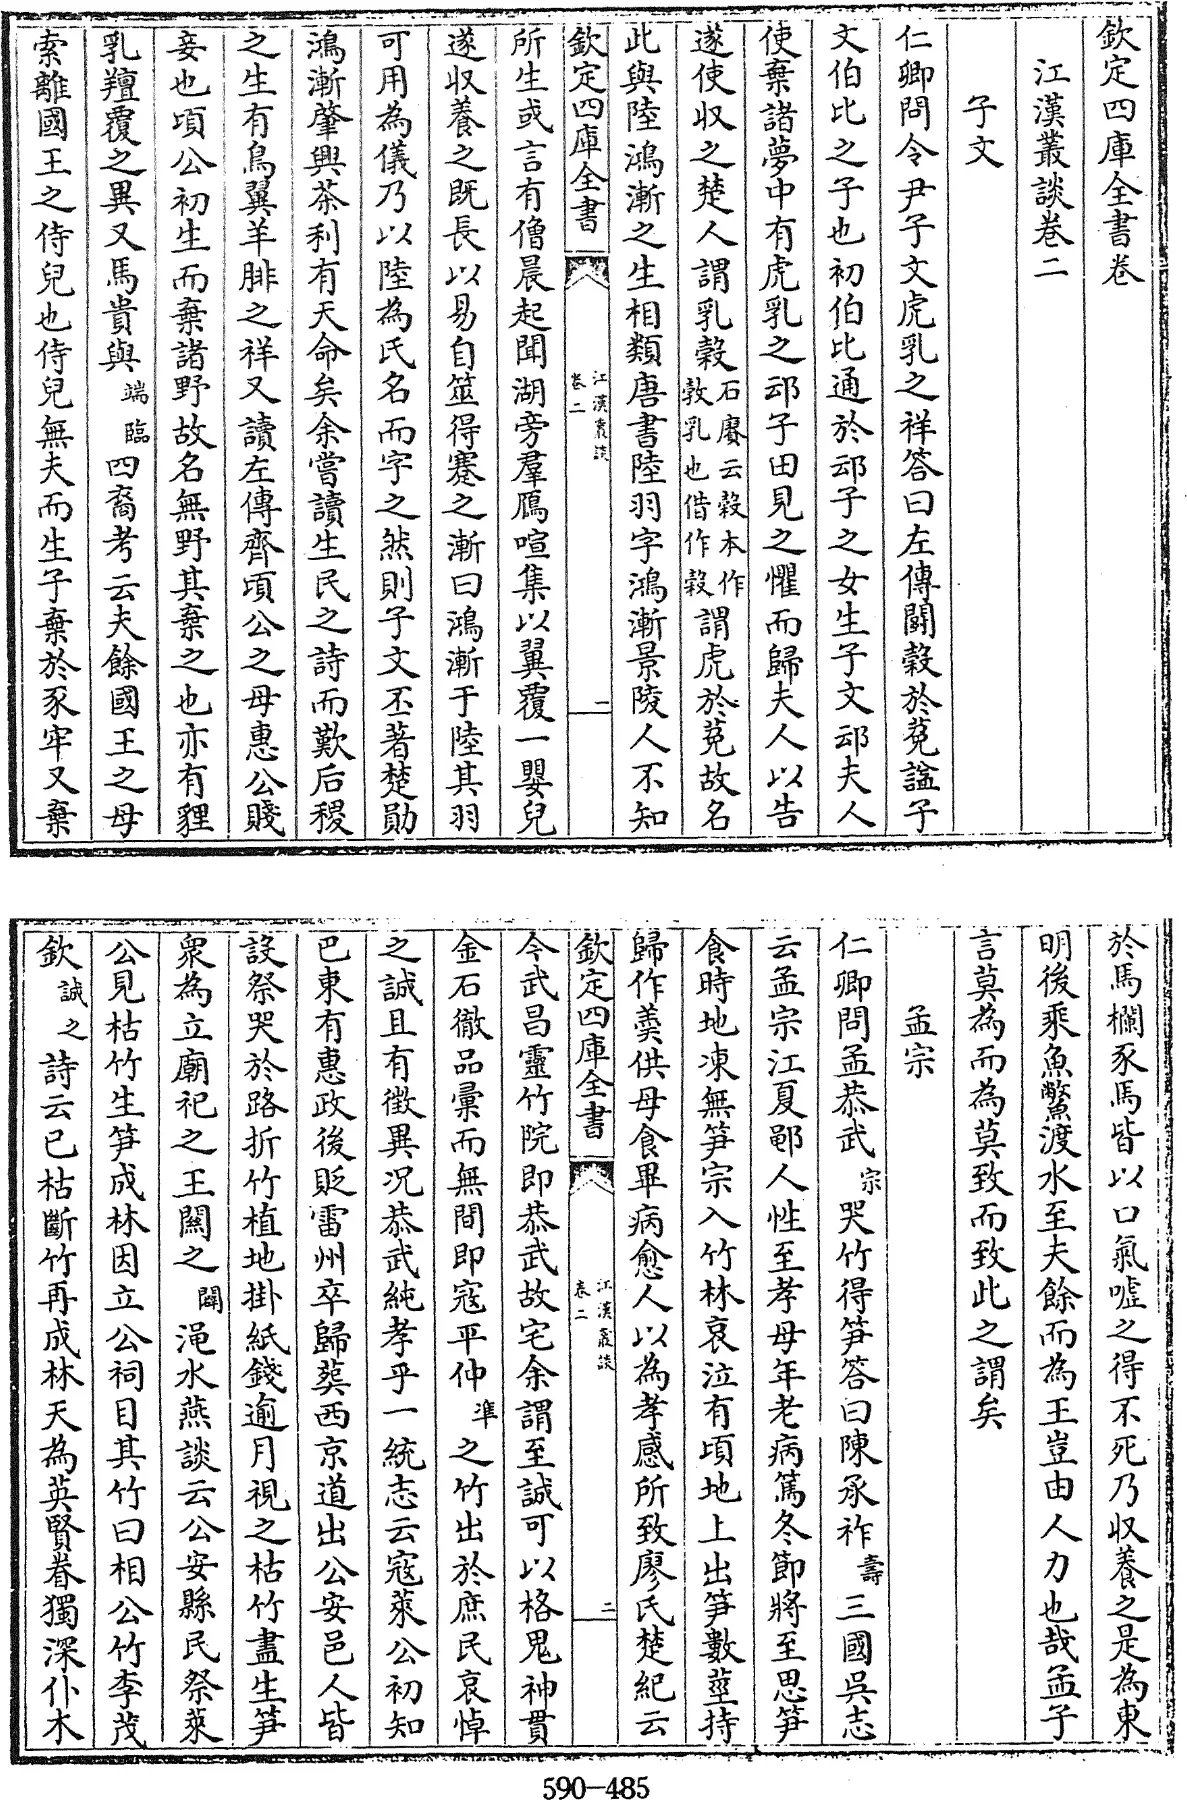 欽定四庫全書卷
江漢叢談卷二
子文
仁卿問令尹子文虎乳之祥答曰左傳鬭穀於菟諡子
文伯比之子也初伯比通於䢵子之女生子文䢵夫人
使棄諸夢中有虎乳之䢵子田見之懼而歸夫人以告
遂使収之楚人謂乳穀石賡云穀本作㝅乳也借作穀謂虎於菟故名
此與陸鴻漸之生相類唐書陸羽字鴻漸景陵人不知
欽定四庫全書 江漢叢談卷二 二
所生或言有僧晨起聞湖旁羣鴈喧集以翼覆一嬰兒
遂収養之既長以易自筮得蹇之漸曰鴻漸于陸其羽
可用為儀乃以陸為氏名而字之然則子文丕著楚勛
鴻漸肇興茶利有天命矣余嘗讀生民之詩而歎后稷
之生有鳥翼羊腓之祥又讀左傳齊頃公之母惠公賤
妾也頃公初生而棄諸野故名無野其棄之也亦有貍
乳鸇覆之異又馬貴與端臨四裔考云夫餘國王之母
索離國王之侍兒也侍兒無夫而生子棄於豕牢又棄
於馬欄豕馬皆以口氣噓之得不死乃収養之是為東
明後乘魚鱉渡水至夫餘而為王豈由人力也哉孟子
言莫為而為莫致而致此之謂矣
孟宗
仁卿問孟恭武宗哭竹得笋答曰陳承祚壽三國吳志
云孟宗江夏鄳人性至孝母年老病篤冬節將至思笋
食時地凍無笋宗入竹林哀泣有頃地上出笋數莖持
歸作羮供母食畢病愈人以為孝感所致廖氏楚紀云
欽定四庫全書 江漢叢談卷二 二
今武昌靈竹院即恭武故宅余謂至誠可以格鬼神貫
金石徹品彚而無間即寇平仲凖之竹出於庶民哀悼
之誠且有徴異况恭武純孝乎一統志云寇萊公初知
巴東有惠政後貶雷州卒歸葬西京道出公安邑人皆
設祭哭於路折竹植地掛紙錢逾月視之枯竹盡生笋
衆為立廟祀之王闗之闢渑水燕談云公安縣民祭萊
公見枯竹生笋成林因立公祠目其竹曰相公竹李茂
欽誠之詩云已枯斷竹再成林天為英賢眷獨深仆木
590-485